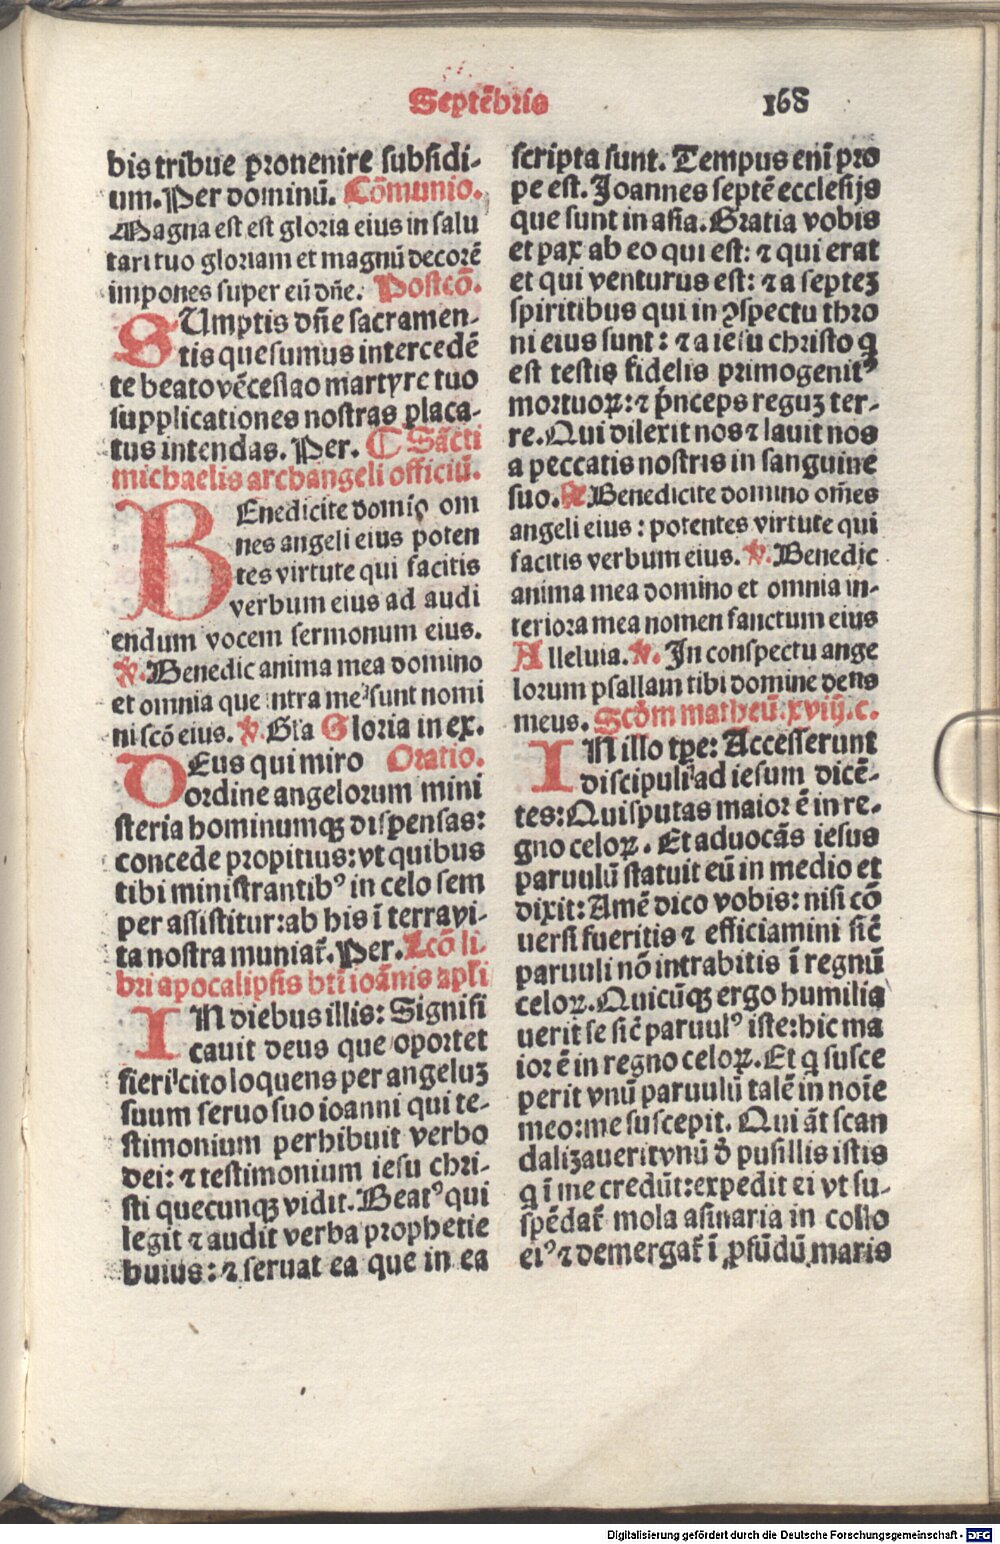 Septēbris 168
bis tribue prouenire subsidi-
um. Per dominū. Cōmunio.
Magna est est gloria eius in salu
tari tuo gloriam et magnū decorē
impones super eū dn̄e. Postcō.
SUmptis dn̄e sacramen-
tis quesumus intercedē
te beato vēceslao martyre tuo
supplicationes nostras placa-
tus intendas. Per. ¶ Sācti
michaelis archangeli officiū.
BEnedicite domiō om
nes angeli eius poten
tes virtute qui facitis
verbum eius ad audi
endum vocem sermonum eius.
℣. Benedic anima mea domino
et omnia que intra me sunt nomi
ni scō eius. ℣. Gl'a Gloria in ex.
DEus qui miro Oratio.
ordine angelorum mini
steria hominumqꝫ dispensas:
concede propitius: vt quibus
tibi ministrantibꝰ in celo sem
per assistitur: ab his ī terra vi-
ta nostra muniat̄. Per. Lcō li-
bri apocalipsis bt̄i ioānis apl̄i
IN diebus illis: Signifi
cauit deus que oportet
fieri cito loquens per angeluꝫ
suum seruo suo ioanni qui te-
stimonium perhibuit verbo
dei: ⁊ testimonium iesu chri-
sti quecunqꝫ vidit. Beatꝰ qui
legit ⁊ audit verba prophetie
huius: ⁊ seruat ea que in ea
scripta sunt. Tempus enī pro
pe est. Joannes septē ecclesijs
que sunt in asia. Gratia vobis
et pax ab eo qui est: ⁊ qui erat
et qui venturus est: ⁊ a septeꝫ
spiritibus qui in ꝯspectu thro
ni eius sunt: ⁊ a iesu christo q̄
est testis fidelis primogenitꝰ
mortuoꝝ: ⁊ p̄nceps reguꝫ ter-
re. Qui dilexit nos ⁊ lauit nos
a peccatis nostris in sanguine
suo. ℟. Benedicite domino om̄es
angeli eius: potentes virtute qui
facitis verbum eius. ℣. Benedic
anima mea domino et omnia in-
teriora mea nomen sanctum eius
Alleluia. ℣. In conspectu ange
lorum psallam tibi domine deus
meus. Scd̄m matheū. xviij. c.
IN illo tp̄e: Accesserunt
discipuli ad iesum dicē-
tes: Quis putas maior ē in re-
gno celoꝝ. Et aduocās iesus
paruulū statuit eū in medio et
dixit: Amē dico vobis: nisi cō
uersi fueritis ⁊ efficiamini sic̄
paruuli nō intrabitis ī regnū
celoꝝ. Quicūqꝫ ergo humilia
uerit se sic̄ paruulꝰ iste: hic ma
ior ē in regno celoꝝ. Et q̄ susce
perit vnū paruulū talē in noīe
meo: me suscepit. Qui āt scan
dalizauerit vnū d̄ pusillis istis
q̄ ī me credūt: expedit ei vt su-
spēdat̄ mola asinaria in collo
eiꝰ ⁊ demergat̄ ī ꝓfūdū maris
Digitalisierung gefördert durch die Deutsche Forschungsgemeinschaft - DFG